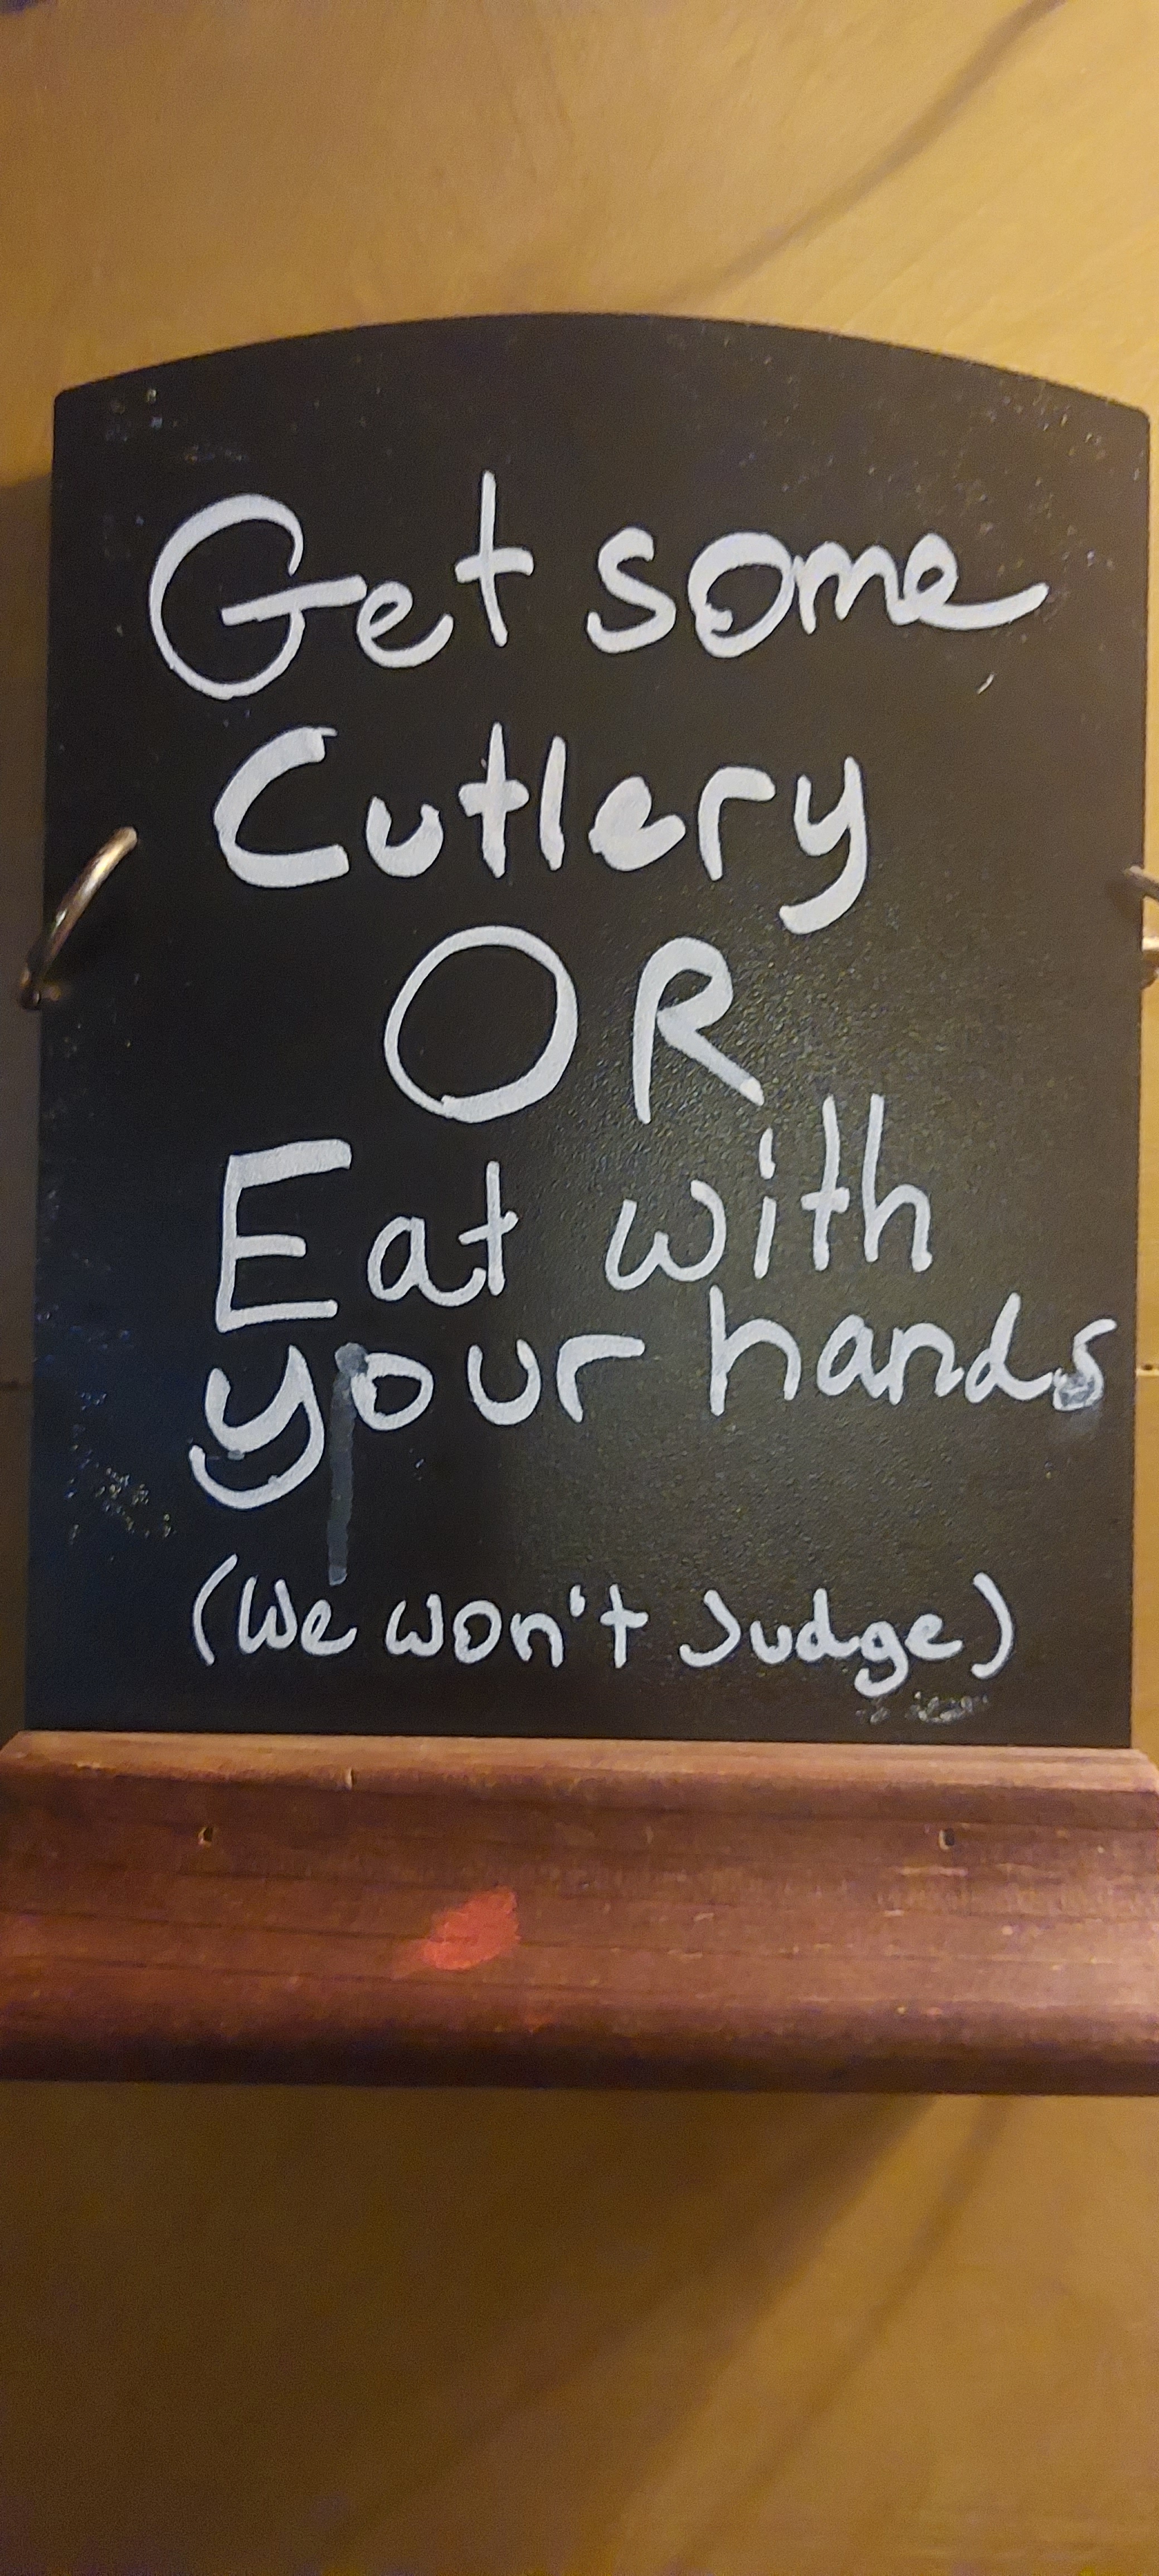 Get some
Cutlery
OR
Eat with
your hands
(We won't Judge)